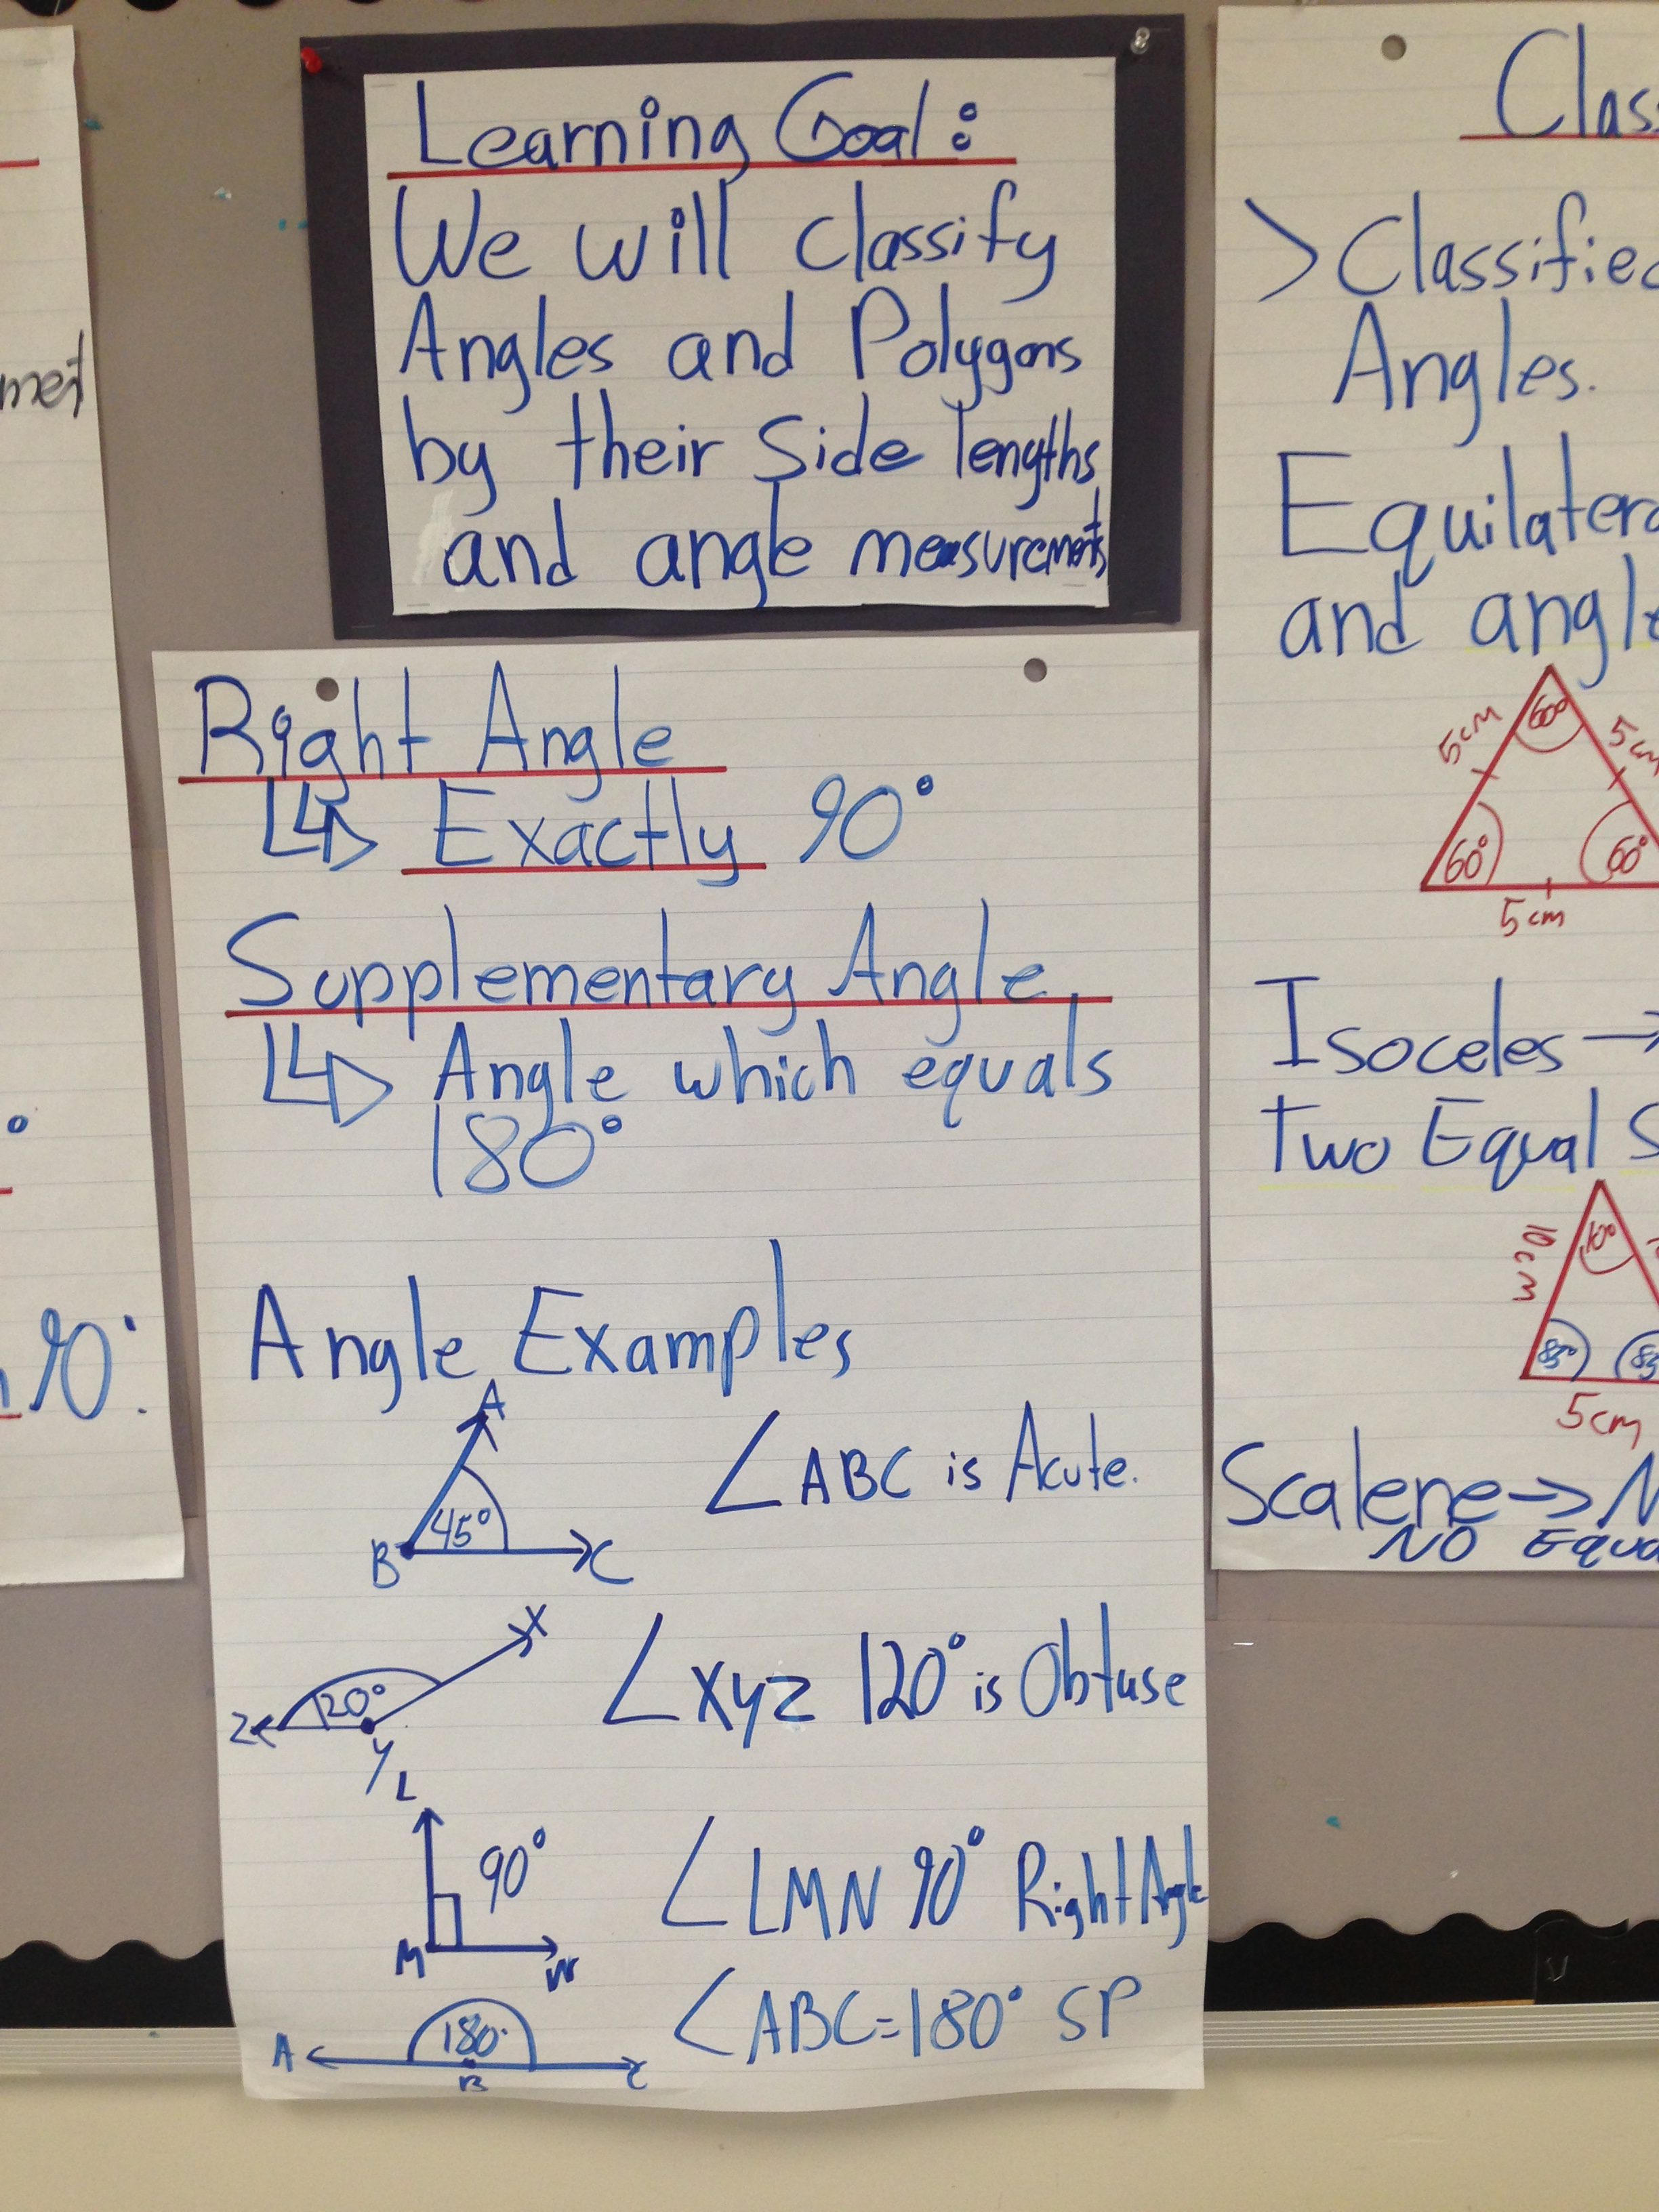 Learning Goal:
We will classify
Angles and Polygons
by their Side lengths
and angle measurements
Right Angle
Exactly 90°
Supplementary Angle
Angle which equals
180°
Angle Examples
A
45°
B
C
∠ABC is Acute.
X
120°
Z
Y
∠XYZ 120° is Obtuse
L
90°
M
N
∠LMN 90° Right Angle
180°
A
B
C
∠ABC=180° SP
90°.
> Classified
Angles.
and angle
60°
5cm
5cm
60°
60°
5cm
Isoceles →
Two Equal
10°
10cm
85°
5cm
Scalene →
NO